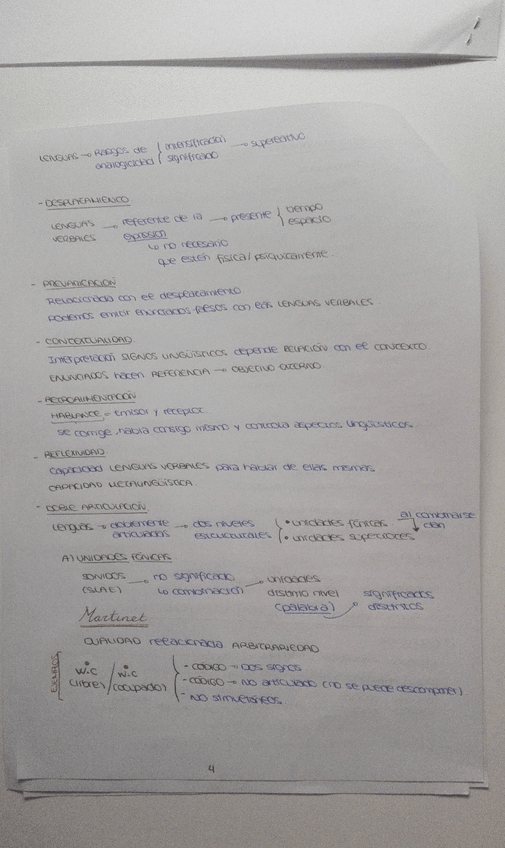 LENGUAS → Rasgos de { intensificación → superlativo
analogicidad { significado
- DESPLAZAMIENTO
LENGUAS → referente de la → presente { tiempo
VERBALES expresión { espacio
↳ no necesario
que estén física/psíquicamente.
- PREVARICACIÓN
Relacionada con el desplazamiento.
Podemos emitir enunciados falsos con las LENGUAS VERBALES.
- CONTEXTUALIDAD
Interpretación SIGNOS LINGÜÍSTICOS depende RELACIÓN con el CONTEXTO.
ENUNCIADOS hacen REFERENCIA → OBJETIVO EXTERNO
- RETROALIMENTACIÓN
HABLANTE = Emisor y receptor.
se corrige, habla consigo mismo y controla aspectos lingüísticos
- REFLEXIVIDAD
Capacidad LENGUAS VERBALES para hablar de ellas mismas
CAPACIDAD METALINGÜÍSTICA.
- DOBLE ARTICULACIÓN
Lenguas → doblemente → dos niveles { • unidades fónicas al combinarse
articuladas estructurales { • unidades superiores dan
A) UNIDADES FÓNICAS
SONIDOS → no significado → unidades
↳ combinación distinto nivel significados
(palabra) distintos
Martinet
CUALIDAD relacionada ARBITRARIEDAD
EJEMPLOS
w.c / w.c { - CÓDIGO → DOS SIGNOS
(libre) / (ocupado) - CÓDIGO → NO ARTICULADO (no se puede descomponer)
- NO SIMULTÁNEOS.
4